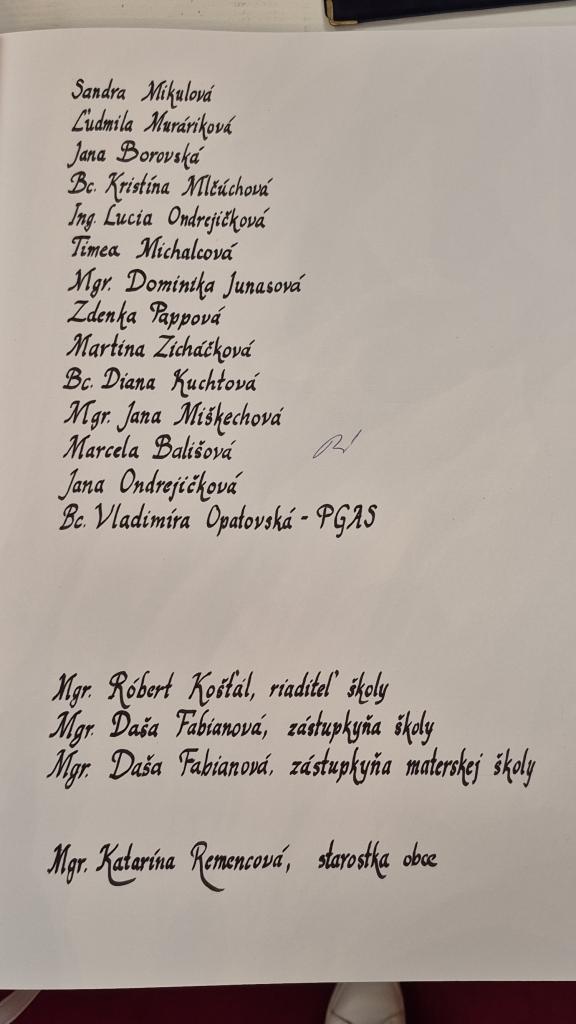 Sandra Mikulová
Ľudmila Muráriková
Jana Borovská
Bc. Kristína Mlčúchová
Ing. Lucia Ondrejičková
Timea Michalcová
Mgr. Dominika Junasová
Zdenka Pappová
Martina Zicháčková
Bc. Diana Kuchtová
Mgr. Jana Miškechová
Marcela Bališová
Jana Ondrejičková
Bc. Vladimíra Opatovská - PGAS
Mgr. Róbert Košťál, riaditeľ školy
Mgr. Daša Fabianová, zástupkyňa školy
Mgr. Daša Fabianová, zástupkyňa materskej školy
Mgr. Katarína Remencová, starostka obce